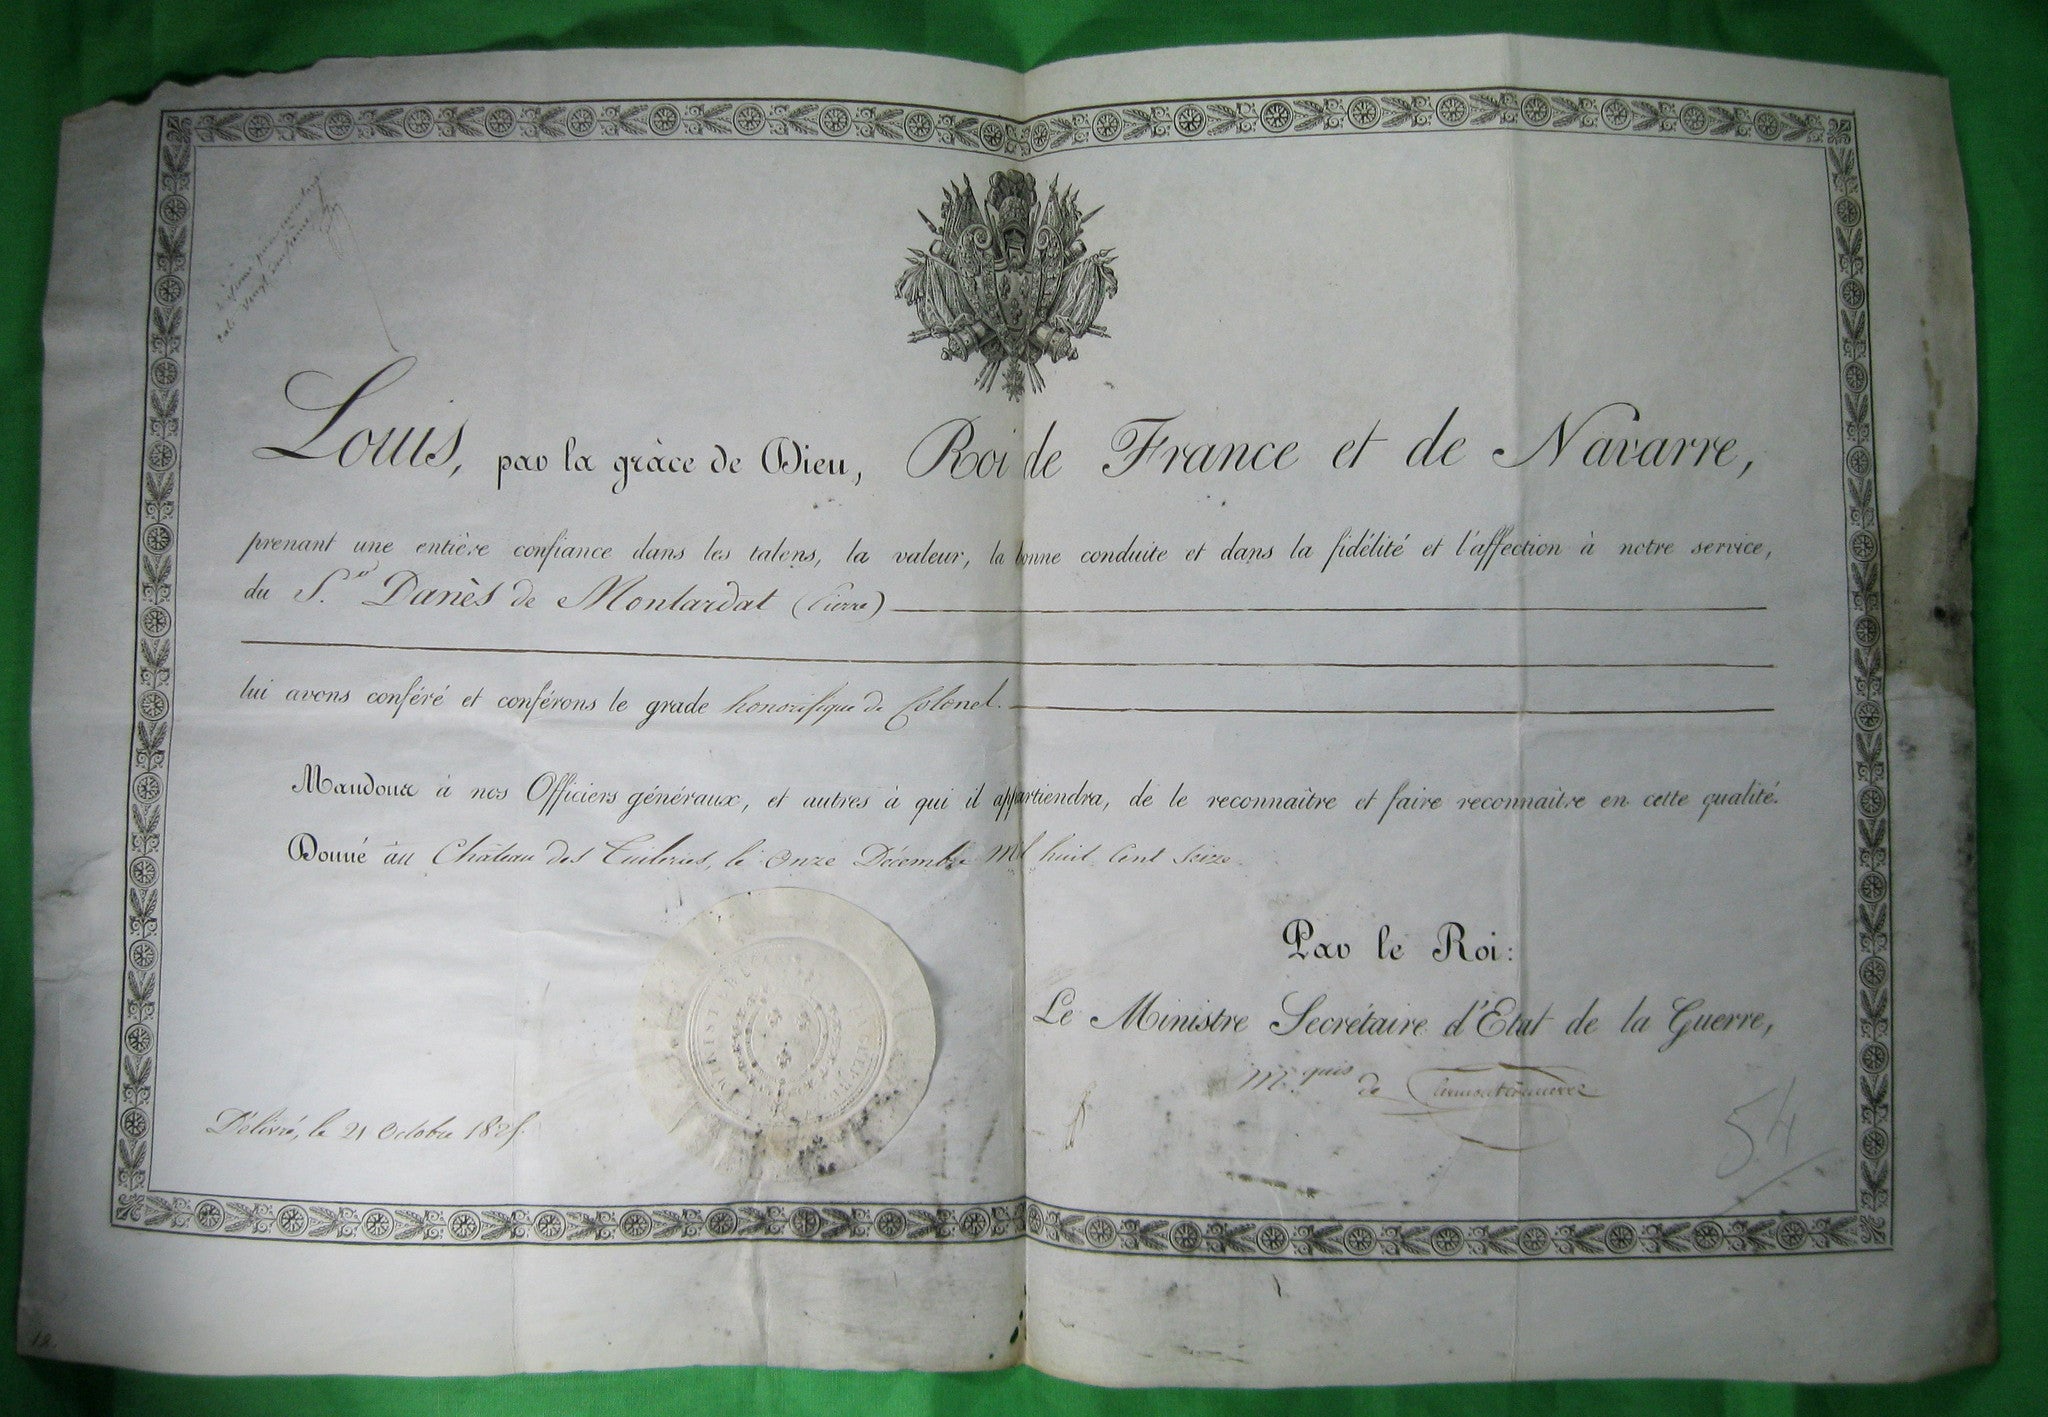 Louis, par la grâce de Dieu, Roi de France et de Navarre,
prenant une entière confiance dans les talens, la valeur, la bonne conduite et dans la fidélité et l'affection à notre service,
du S.r Danès de Montardat (Pierre)
lui avons conféré et conférons le grade honorifique de Colonel.
Mandons à nos Officiers généraux, et autres à qui il appartiendra, de le reconnaître et faire reconnaître en cette qualité.
Donné au Château des Tuileries, le onze Décembre Mil huit Cent Seize.
Par le Roi:
Le Ministre Secrétaire d'Etat de la Guerre,
M.quis de Clermont-Tonnerre
Délivré, le 21 Octobre 182
MINISTERE
GUERRE
54
12.